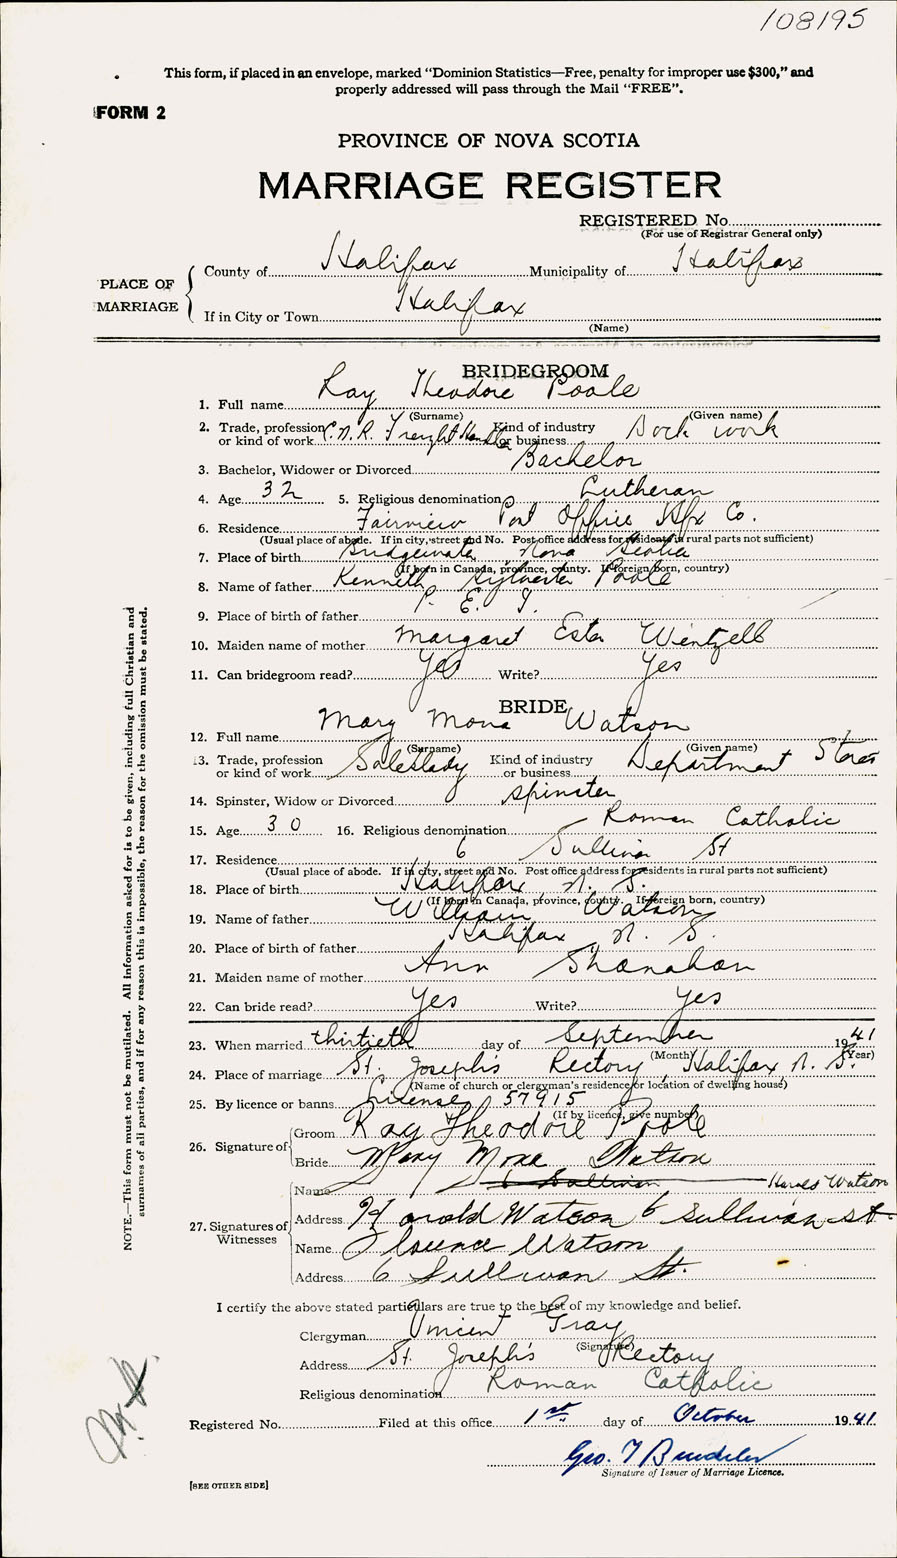 108195
This form, if placed in an envelope, marked "Dominion Statistics—Free, penalty for improper use $300," and
properly addressed will pass through the Mail "FREE".
FORM 2
PROVINCE OF NOVA SCOTIA
MARRIAGE REGISTER
REGISTERED No.
(For use of Registrar General only)
PLACE OF MARRIAGE
County of Halifax Municipality of Halifax
If in City or Town Halifax
(Name)
BRIDEGROOM
1. Full name Ray Theodore Poole
(Surname) (Given name)
2. Trade, profession or kind of work C.N.R. Freight Handler Kind of industry or business Dock work
3. Bachelor, Widower or Divorced Bachelor
4. Age 32 5. Religious denomination Lutheran
6. Residence Fairview Post Office Hfx Co.
(Usual place of abode. If in city, street and No. Post office address for residents in rural parts not sufficient)
7. Place of birth Bridgewater Nova Scotia
(If born in Canada, province, county. If foreign born, country)
8. Name of father Kenneth Sylvester Poole
9. Place of birth of father P. E. I.
10. Maiden name of mother Margaret Ester Wentzell
11. Can bridegroom read? Yes Write? Yes
BRIDE
12. Full name Mary Mona Watson
(Surname) (Given name)
13. Trade, profession or kind of work Saleslady Kind of industry or business Department Stores
14. Spinster, Widow or Divorced Spinster
15. Age 30 16. Religious denomination Roman Catholic
17. Residence 6 Sullivan St
(Usual place of abode. If in city, street and No. Post office address for residents in rural parts not sufficient)
18. Place of birth Halifax N. S.
(If born in Canada, province, county. If foreign born, country)
19. Name of father William Watson
20. Place of birth of father Halifax N. S.
21. Maiden name of mother Ann Shanahan
22. Can bride read? Yes Write? Yes
23. When married thirtieth day of September 1941
(Month) (Year)
24. Place of marriage St. Joseph's Rectory, Halifax N. S.
(Name of church or clergyman's residence or location of dwelling house)
25. By licence or banns License 57915
(If by licence, give number)
26. Signature of Groom Ray Theodore Poole
Bride Mary Mona Watson
27. Signatures of Witnesses
Name 6 Sullivan Harold Watson
Address Harold Watson 6 Sullivan St.
Name Florence Watson
Address 6 Sullivan St.
I certify the above stated particulars are true to the best of my knowledge and belief.
Clergyman Vincent Gray
(Signature)
Address St. Joseph's Rectory
Religious denomination Roman Catholic
Registered No. Filed at this office 1st day of October 1941
Geo. T
Signature of Issuer of Marriage Licence.
[SEE OTHER SIDE]
NOTE.—This form must not be mutilated. All information asked for is to be given, including full Christian and
surnames of all parties, and if for any reason this is impossible, the reason for the omission must be stated.